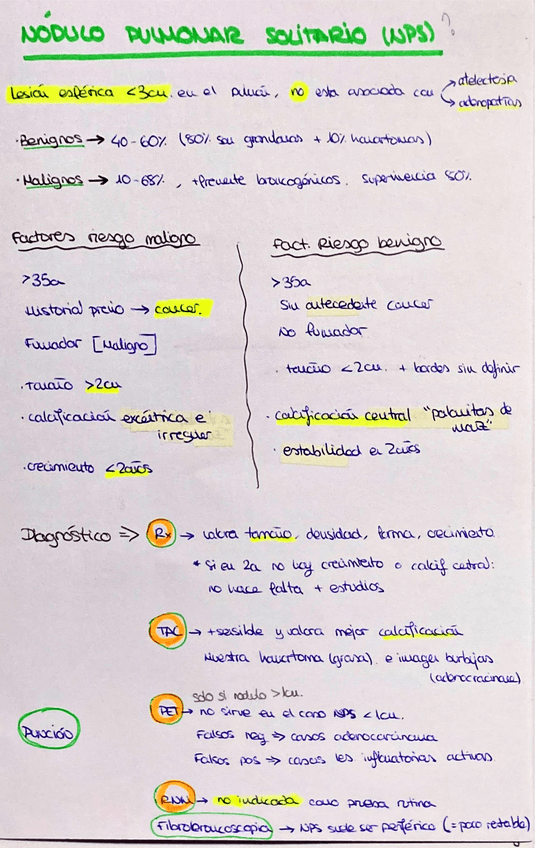 NÓDULO PULMONAR SOLITARIO (NPS) ?
Lesión esférica <3cm. en el pulmón, no esta asociada con → atelectasia
→ adenopatías
· Benignos → 40-60% (80% son granulomas + 10% hamartomas)
· Malignos → 10-68%, +frecuente broncogénicos. Supervivencia 50%.
Factores riesgo maligno
>35a
Historial previo → cancer.
Fumador [Maligno]
· Tamaño >2cm
· calcificación excéntrica e
irregular
· crecimiento <2años
Fact. Riesgo benigno
>35a
Sin antecedente cancer
No fumador
· tamaño <2cm. + bordes sin definir
· calcificación central "palomitas de
maíz"
· estabilidad en 2años
Diagnóstico => Rx → valora tamaño, densidad, forma, crecimiento
* Si en 2a no hay crecimiento o calcif central:
no hace falta + estudios
TAC → +sensible y valora mejor calcificación
Muestra hamartoma (grasa) e imagen burbujas
(adenocarcinoma)
solo si nodulo >1cm.
PET → no sirve en el caso NPS <1cm.
Falsos neg => casos adenocarcinoma
Falsos pos => casos les inflamatorias activas
Punción
RNM → no indicada como prueba rutina
Fibrobroncoscopia → NPS suele ser periférico (= poco rentable)